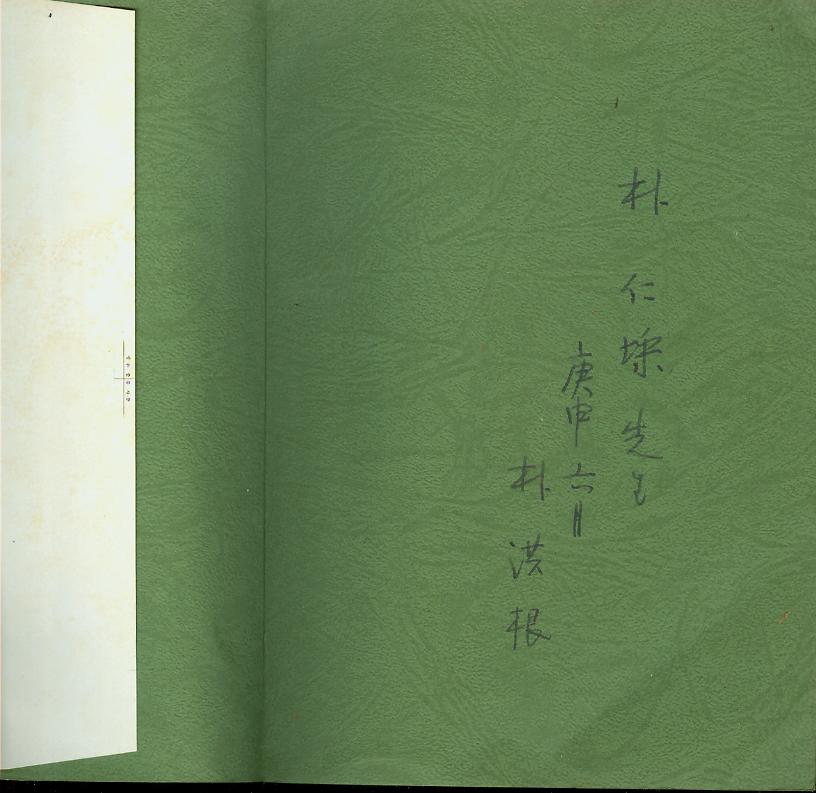 朴仁埰先生
庚申六月
朴洪根